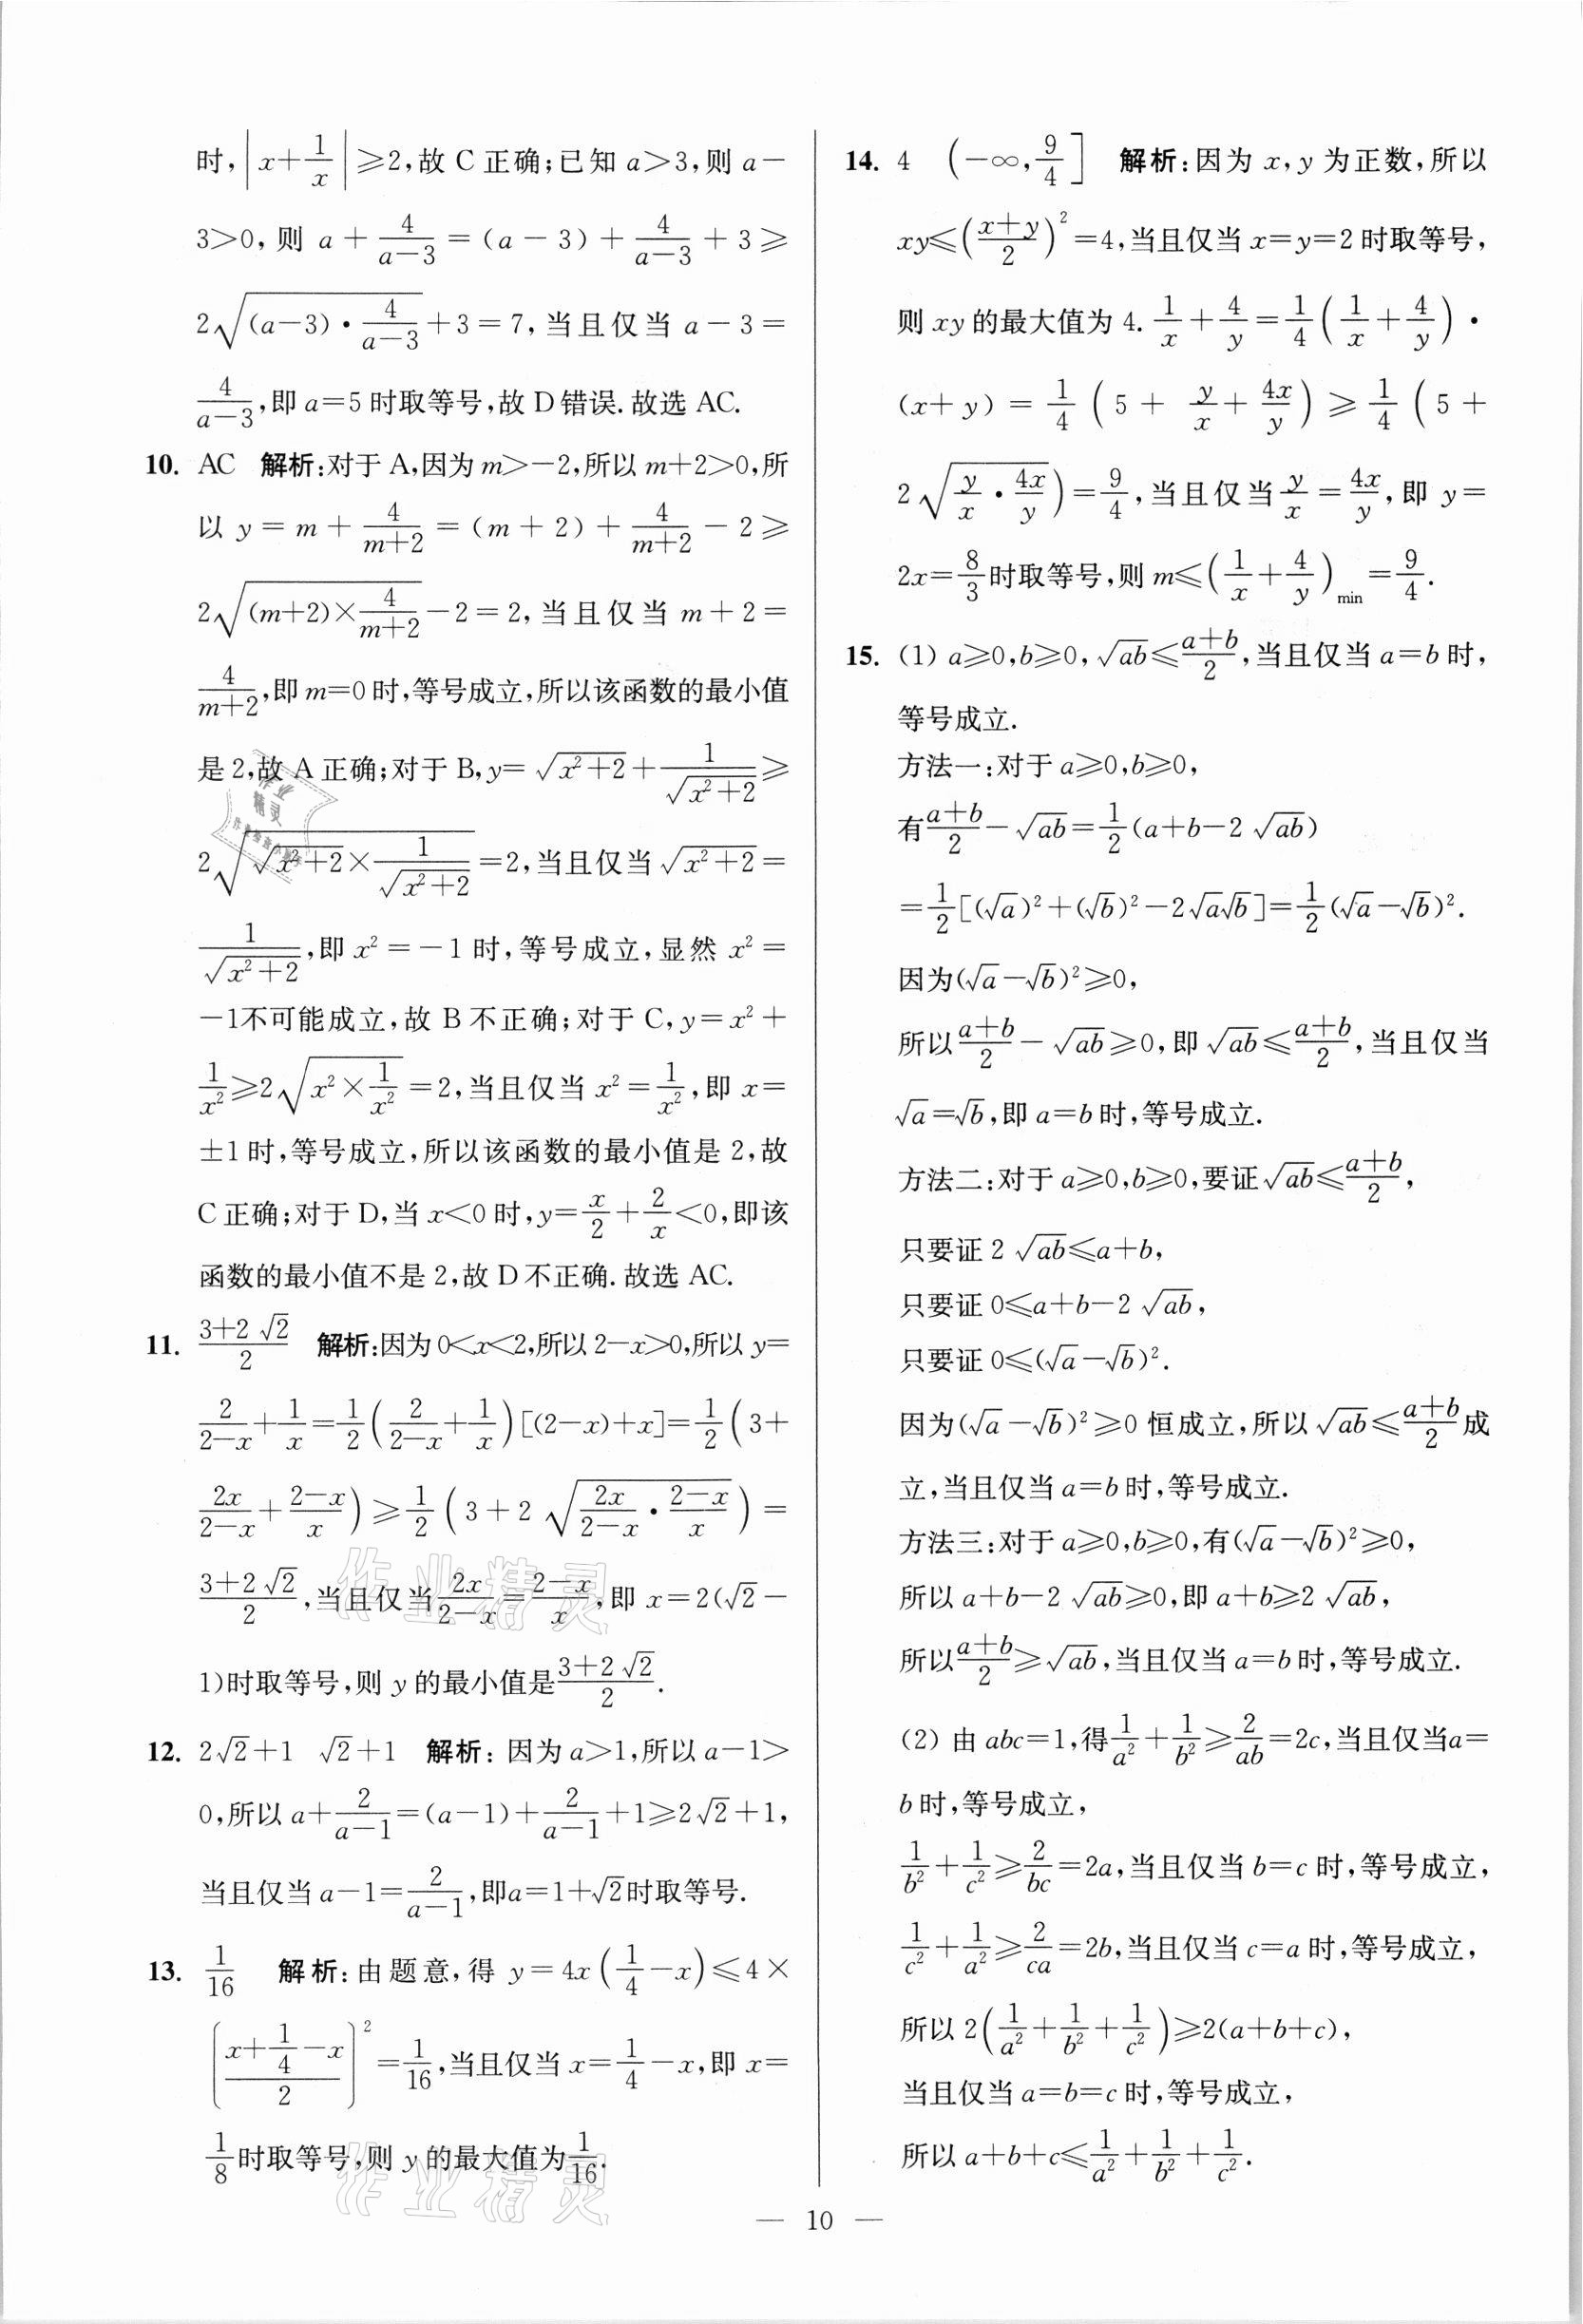 时,|x+1/x|≥2,故 C 正确;已知 a>3,则 a-
3>0,则 a+4/(a-3)=(a-3)+4/(a-3)+3≥
2√((a-3)·4/(a-3))+3=7,当且仅当 a-3=
4/(a-3),即 a=5 时取等号,故 D 错误.故选 AC.
10. AC 解析:对于 A,因为 m>-2,所以 m+2>0,所
以 y=m+4/(m+2)=(m+2)+4/(m+2)-2≥
2√((m+2)×4/(m+2))-2=2,当且仅当 m+2=
4/(m+2),即 m=0 时,等号成立,所以该函数的最小值
是 2,故 A 正确;对于 B,y=√(x²+2)+1/√(x²+2)≥
2√(√(x²+2)×1/√(x²+2))=2,当且仅当√(x²+2)=
1/√(x²+2),即 x²=-1 时,等号成立,显然 x²=
-1不可能成立,故 B 不正确;对于 C,y=x²+
1/x²≥2√(x²×1/x²)=2,当且仅当 x²=1/x²,即 x=
±1 时,等号成立,所以该函数的最小值是 2,故
C 正确;对于 D,当 x<0 时,y=x/2+2/x<0,即该
函数的最小值不是 2,故 D 不正确.故选 AC.
11. (3+2√2)/2 解析:因为 0<x<2,所以 2-x>0,所以 y=
2/(2-x)+1/x=1/2(2/(2-x)+1/x)[(2-x)+x]=1/2(3+
2x/(2-x)+(2-x)/x)≥1/2(3+2√(2x/(2-x)·(2-x)/x))=
(3+2√2)/2,当且仅当2x/(2-x)=(2-x)/x,即 x=2(√2-
1)时取等号,则 y 的最小值是(3+2√2)/2.
12. 2√2+1 √2+1 解析:因为 a>1,所以 a-1>
0,所以 a+2/(a-1)=(a-1)+2/(a-1)+1≥2√2+1,
当且仅当 a-1=2/(a-1),即a=1+√2时取等号.
13. 1/16 解析:由题意,得 y=4x(1/4-x)≤4×
((x+1/4-x)/2)²=1/16,当且仅当 x=1/4-x,即 x=
1/8时取等号,则 y 的最大值为1/16.
14. 4 (-∞,9/4] 解析:因为 x,y 为正数,所以
xy≤((x+y)/2)²=4,当且仅当 x=y=2 时取等号,
则 xy 的最大值为 4.1/x+4/y=1/4(1/x+4/y)·
(x+y)=1/4(5+y/x+4x/y)≥1/4(5+
2√(y/x·4x/y))=9/4,当且仅当y/x=4x/y,即 y=
2x=8/3时取等号,则 m≤(1/x+4/y)min=9/4.
15. (1) a≥0,b≥0,√ab≤(a+b)/2,当且仅当 a=b 时,
等号成立.
方法一:对于 a≥0,b≥0,
有(a+b)/2-√ab=1/2(a+b-2√ab)
=1/2[(√a)²+(√b)²-2√a√b]=1/2(√a-√b)².
因为(√a-√b)²≥0,
所以(a+b)/2-√ab≥0,即√ab≤(a+b)/2,当且仅当
√a=√b,即 a=b 时,等号成立.
方法二:对于 a≥0,b≥0,要证√ab≤(a+b)/2,
只要证 2√ab≤a+b,
只要证 0≤a+b-2√ab,
只要证 0≤(√a-√b)².
因为(√a-√b)²≥0 恒成立,所以√ab≤(a+b)/2成
立,当且仅当 a=b 时,等号成立.
方法三:对于 a≥0,b≥0,有(√a-√b)²≥0,
所以 a+b-2√ab≥0,即 a+b≥2√ab,
所以(a+b)/2≥√ab,当且仅当 a=b 时,等号成立.
(2) 由 abc=1,得1/a²+1/b²≥2/ab=2c,当且仅当a=
b 时,等号成立,
1/b²+1/c²≥2/bc=2a,当且仅当 b=c 时,等号成立,
1/c²+1/a²≥2/ca=2b,当且仅当 c=a 时,等号成立,
所以 2(1/a²+1/b²+1/c²)≥2(a+b+c),
当且仅当 a=b=c 时,等号成立,
所以 a+b+c≤1/a²+1/b²+1/c².
— 10 —
作业
精灵
作业精灵
作业精灵